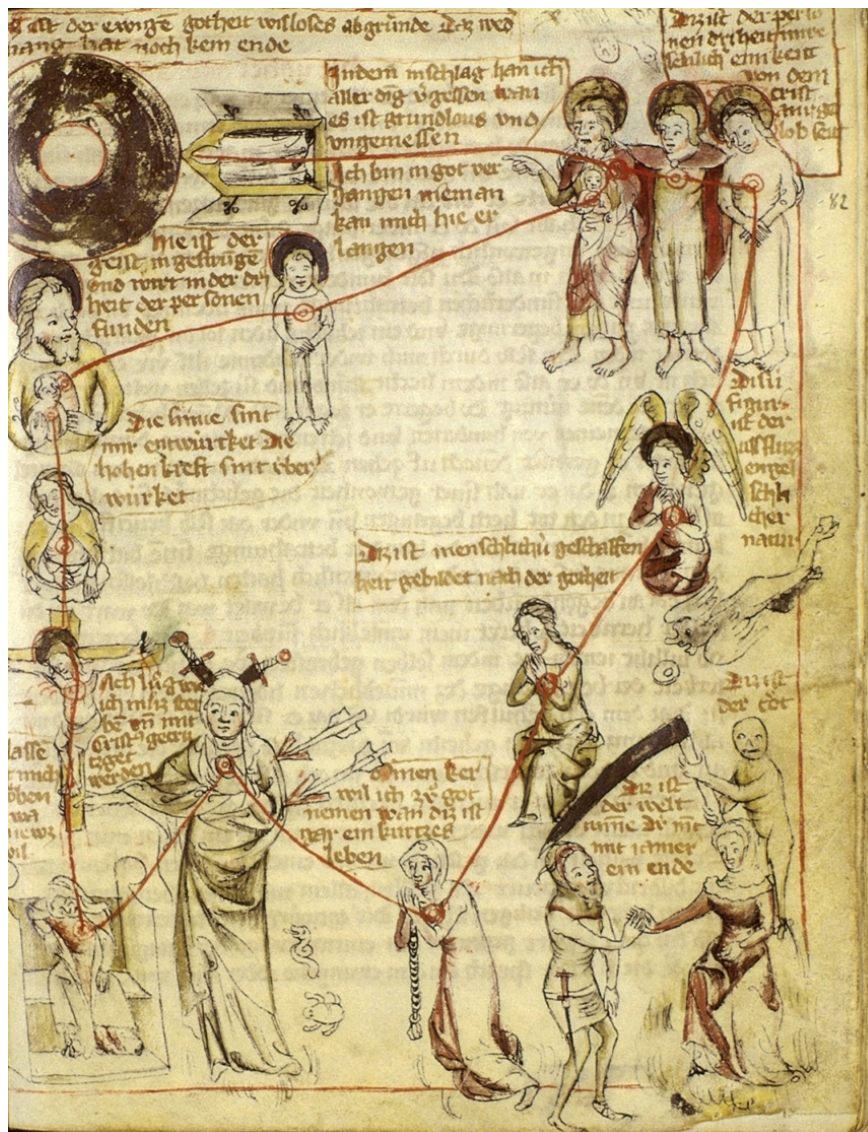 ist der ewigē gotheit wisloses abgrúnde Dz wed
vang hat noch kein ende
Diz ist der perso
nen driheit in we
senlich einikeit
von dem
crist
gelob seit
In dem inschlag han ich
aller ding v̄gessen wan
es ist grundlous vnd
vngemessen
Ich bin in got ver
gangen nieman
kan mich hie er
langen
82
Hie ist der
geist ingeswūgē
vnd wirt in der dri
heit der personen
funden
Die sinne sint
mir entwúrket Die
hohen kreft sint úber
wúrket
Disú
figur
ist der
vssfluz
engel
schli
cher
natur
Diz ist menschlichú geschaffen
heit gebildet nach der gotheit
Diz ist
der tot
Ich
ich mūz ster
ben vn̄ mit
Cristꝰ gecrú
tzget
werden
lasse
mich
einen ker
wil ich zů got
nemen wan diz ist
gar ein kurtzes
leben
Diz ist
der welt
minne Dē nīt
mit iamer
ein ende